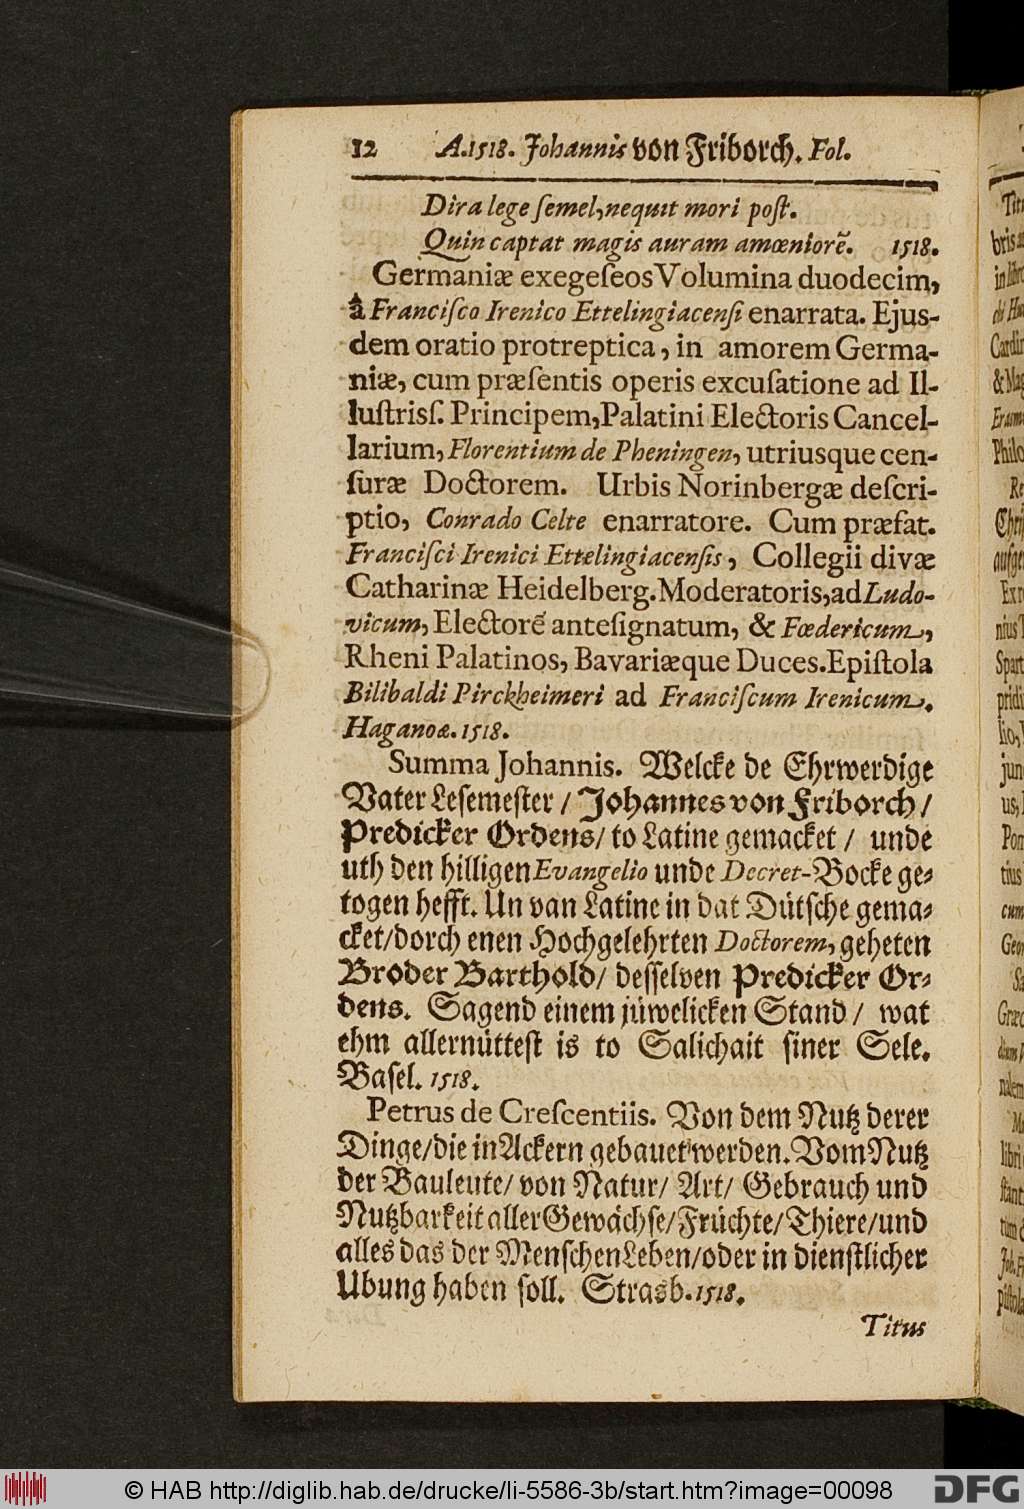 12 A. 1518. Johannis von Friborch. Fol.
Dira lege ſemel, nequit mori poſt.
Quin captat magis auram amœniorẽ. 1518.
Germaniæ exegeſeos Volumina duodecim,
â Franciſco Irenico Ettelingiacenſi enarrata. Ejus-
dem oratio protreptica, in amorem Germa-
niæ, cum præſentis operis excuſatione ad Il-
luſtriſſ. Principem, Palatini Electoris Cancel-
larium, Florentium de Pheningen, utriusque cen-
ſuræ Doctorem. Urbis Norinbergæ deſcri-
ptio, Conrado Celte enarratore. Cum præfat.
Franciſci Irenici Ettelingiacenſis, Collegii divæ
Catharinæ Heidelberg. Moderatoris, ad Ludo-
vicum, Electorẽ anteſignatum, & Fœdericum,
Rheni Palatinos, Bavariæque Duces. Epiſtola
Bilibaldi Pirckheimeri ad Franciſcum Irenicum.
Haganoæ. 1518.
Summa Johannis. Welcke de Ehrwerdige
Vater Leſemeſter / Johannes von Friborch /
Predicker Ordens / to Latine gemacket / unde
uth den hilligen Evangelio unde Decret-Bocke ge-
togen hefft. Un van Latine in dat Dütſche gema-
cket / dorch enen Hochgelehrten Doctorem, geheten
Broder Barthold / deſſelven Predicker Or-
dens. Sagend einem jüwelicken Stand / wat
ehm allernütteſt is to Salichait ſiner Sele.
Baſel. 1518.
Petrus de Creſcentiis. Von dem Nutz derer
Dinge / die in Ackern gebauet werden. Vom Nutz
der Bauleute / von Natur / Art / Gebrauch und
Nutzbarkeit aller Gewächſe / Früchte / Thiere / und
alles das der Menſchen Leben / oder in dienſtlicher
Ubung haben ſoll. Strasb. 1518.
Titus
© HAB http://diglib.hab.de/drucke/li-5586-3b/start.htm?image=00098
DFG